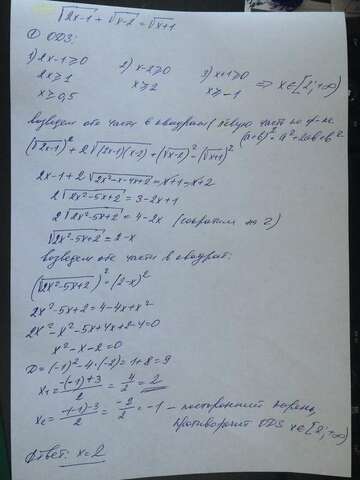 √2x-1 + √x-2 = √x+1
① ОДЗ:
1) 2x-1≥0 2) x-2≥0 3) x+1≥0 ⇒ x∈[2;+∞)
2x≥1 x≥2 x≥-1
x≥0,5
возведем обе части в квадрат (левую часть по ф-ле
(a+b)²=a²+2ab+b²
(√2x-1)²+2√(2x-1)(x-2)+(√x-2)²=(√x+1)²
2x-1+2√2x²-x-4x+2=x+1-x+2
2√2x²-5x+2=3-2x+1
2√2x²-5x+2=4-2x (сократим на 2)
√2x²-5x+2=2-x
возведем обе части в квадрат:
(√2x²-5x+2)²=(2-x)²
2x²-5x+2=4-4x+x²
2x²-x²-5x+4x+2-4=0
x²-x-2=0
D=(-1)²-4·(-2)=1+8=9
x₁=-(-1)+3/2=4/2=2
x₂=-(-1)-3/2=-2/2=-1 – посторонний корень,
противоречит ОДЗ x∈[2;+∞)
Ответ: x=2